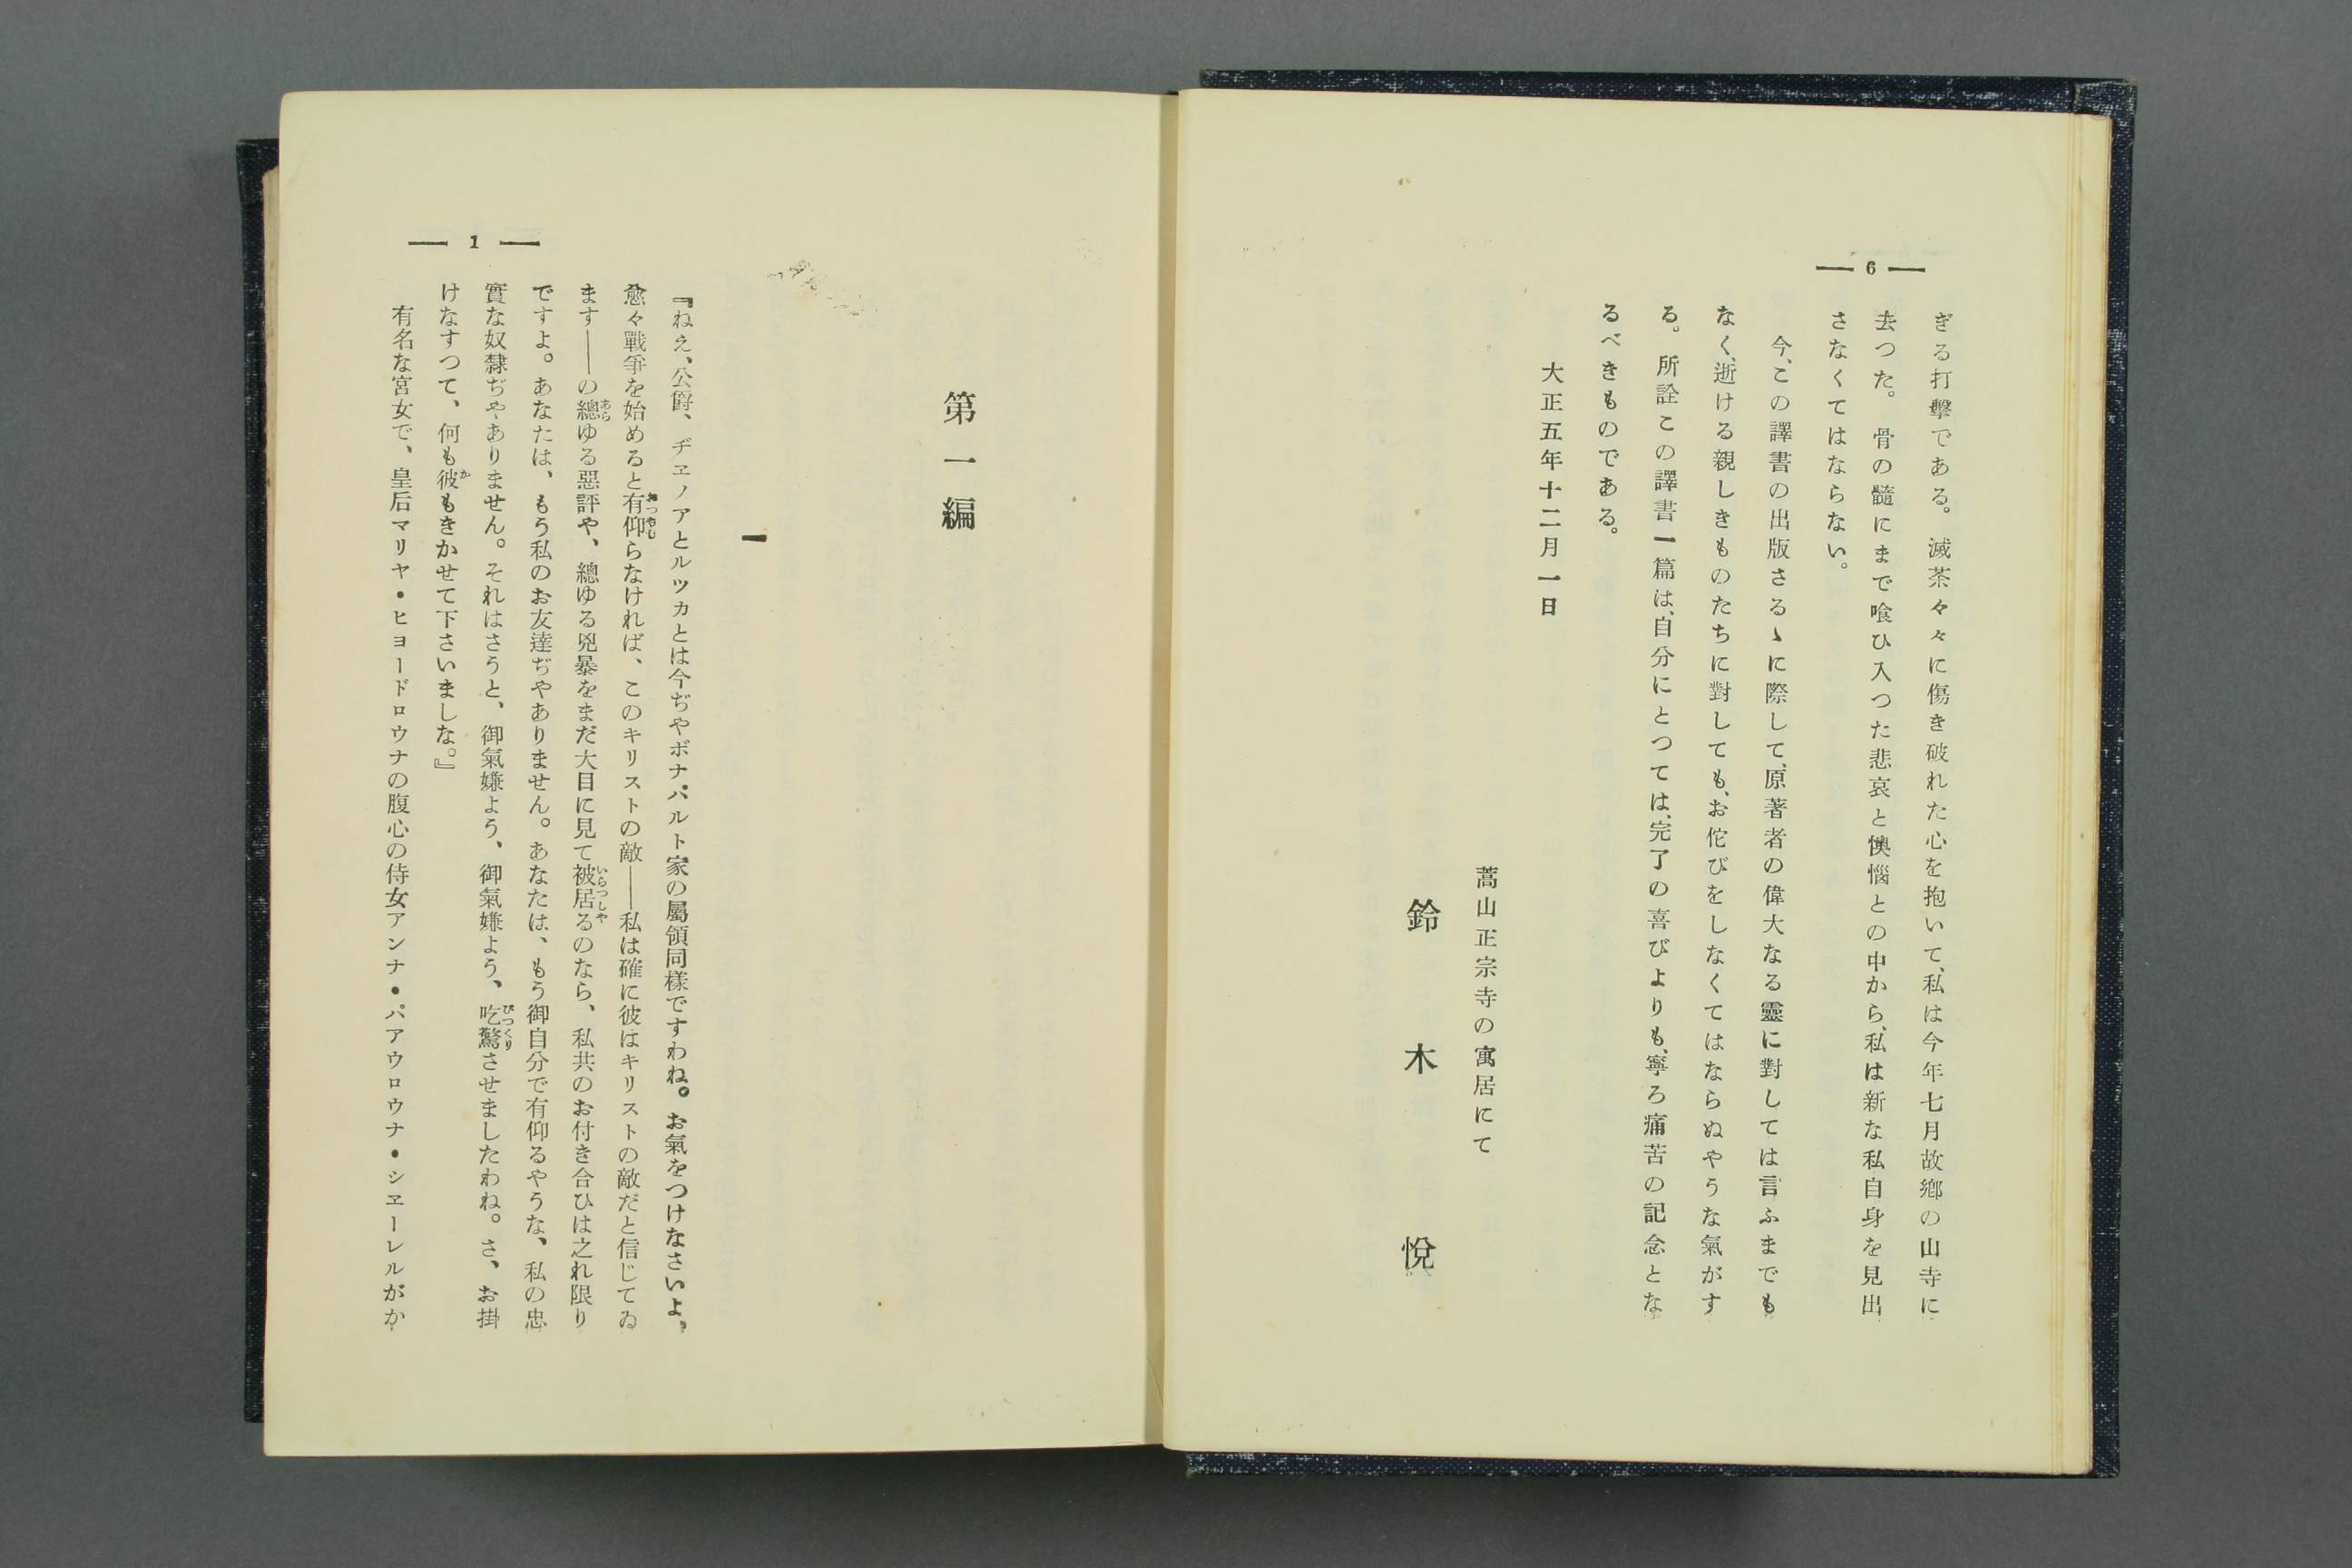 — 6 —
ぎる打擊である。滅茶々々に傷き破れた心を抱いて、私は今年七月故鄕の山寺に
去つた。骨の髓にまで喰ひ入つた悲哀と懊惱との中から、私は新な私自身を見出
さなくてはならない。
今、この譯書の出版さるゝに際して、原著者の偉大なる靈に對しては言ふまでも
なく、逝ける親しきものたちに對しても、お佗びをしなくてはならぬやうな氣がす
る。所詮この譯書一篇は、自分にとつては、完了の喜びよりも、寧ろ痛苦の記念とな
るべきものである。
大正五年十二月一日
蒿山正宗寺の寓居にて
鈴木悅
第一編
一
『ねえ、公爵、ヂヱノアとルツカとは今ぢやボナパルト家の屬領同樣ですわね。お氣をつけなさいよ、
愈々戰爭を始めると有仰らなければ、このキリストの敵——私は確に彼はキリストの敵だと信じてゐ
ます——の總ゆる惡評や、總ゆる兇暴をまだ大目に見て被居るのなら、私共のお付き合ひは之れ限り
ですよ。あなたは、もう私のお友達ぢやありません。あなたは、もう御自分で有仰るやうな、私の忠
實な奴隸ぢやありません。それはさうと、御氣嫌よう、御氣嫌よう、吃驚させましたわね。さ、お掛
けなすつて、何も彼もきかせて下さいましな。』
有名な宮女で、皇后マリヤ・ヒヨードロウナの腹心の侍女アンナ・パアウロウナ・シヱーレルがか
— 1 —